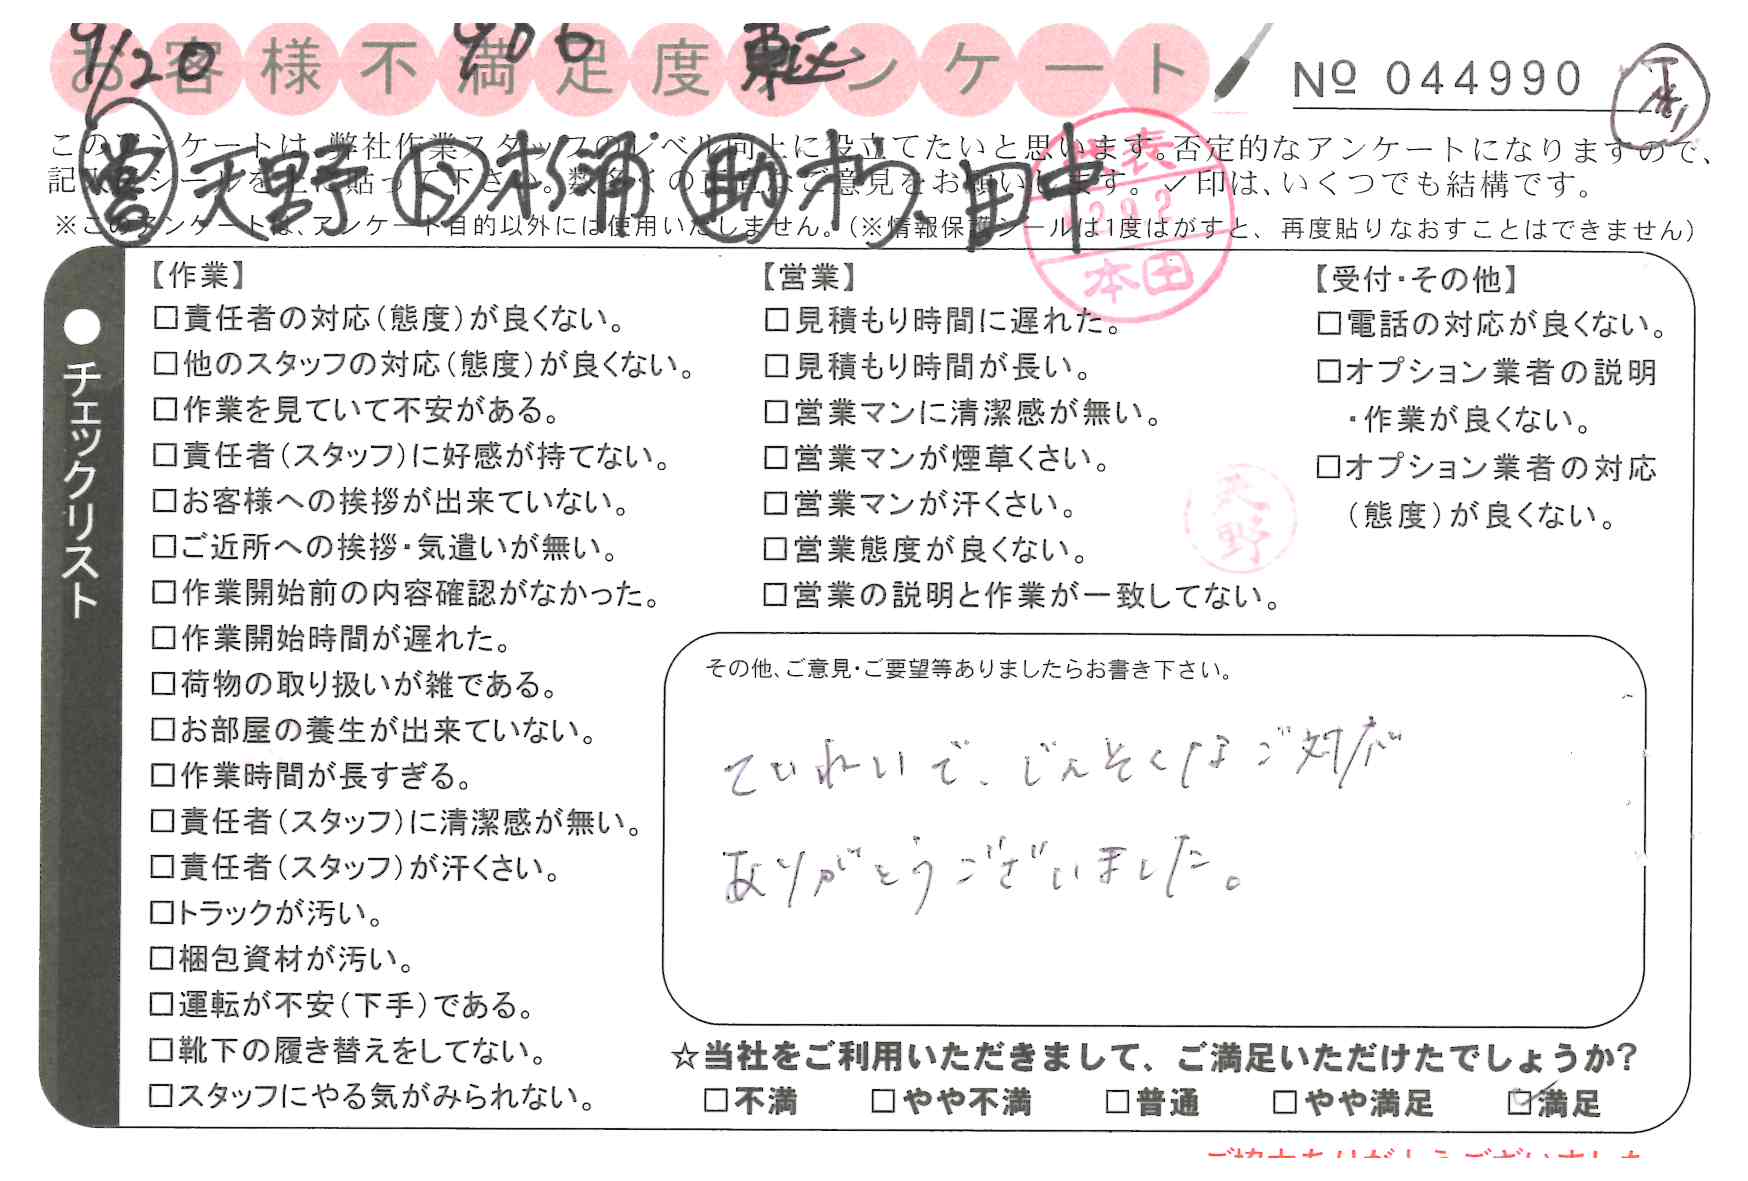 お客様不満足度アンケート
9/20
東証
№ 044990
このアンケートは、弊社作業スタッフのレベル向上に役立てたいと思います。否定的なアンケートになりますので、
記入後シールを上に貼って下さい。数多くの正直なご意見をお願いします。✓印は、いくつでも結構です。
営 天野 ト 杉浦 助 オワ、田中
※このアンケートは、アンケート目的以外には使用いたしません。(※情報保護シールは1度はがすと、再度貼りなおすことはできません)
代表
本田
天野
●チェックリスト
【作業】
□責任者の対応(態度)が良くない。
□他のスタッフの対応(態度)が良くない。
□作業を見ていて不安がある。
□責任者(スタッフ)に好感が持てない。
□お客様への挨拶が出来ていない。
□ご近所への挨拶・気遣いが無い。
□作業開始前の内容確認がなかった。
□作業開始時間が遅れた。
□荷物の取り扱いが雑である。
□お部屋の養生が出来ていない。
□作業時間が長すぎる。
□責任者(スタッフ)に清潔感が無い。
□責任者(スタッフ)が汗くさい。
□トラックが汚い。
□梱包資材が汚い。
□運転が不安(下手)である。
□靴下の履き替えをしてない。
□スタッフにやる気がみられない。
【営業】
□見積もり時間に遅れた。
□見積もり時間が長い。
□営業マンに清潔感が無い。
□営業マンが煙草くさい。
□営業マンが汗くさい。
□営業態度が良くない。
□営業の説明と作業が一致してない。
【受付・その他】
□電話の対応が良くない。
□オプション業者の説明
・作業が良くない。
□オプション業者の対応
(態度)が良くない。
その他、ご意見・ご要望等ありましたらお書き下さい。
ていねいで、じんそくなご対応
ありがとうございました。
☆当社をご利用いただきまして、ご満足いただけたでしょうか?
□不満 □やや不満 □普通 □やや満足 ☑満足
ご協力ありがとうございました